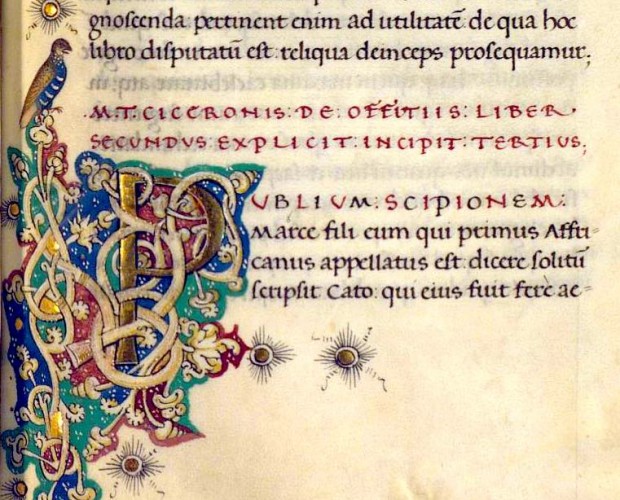 gnoscenda pertinent enim ad utilitatē de qua hoc
libro disputatū est reliqua deinceps prosequamur;
M:T:CICERONIS:DE:OFFITIIS:LIBER·
SECVNDVS:EXPLICIT:INCIPIT:TERTIVS;
PVBLIVM:SCIPIONEM:
Marce fili eum qui primus Affri-
canus appellatus est: dicere solitū
scripsit Cato: qui eius fuit fere ae-